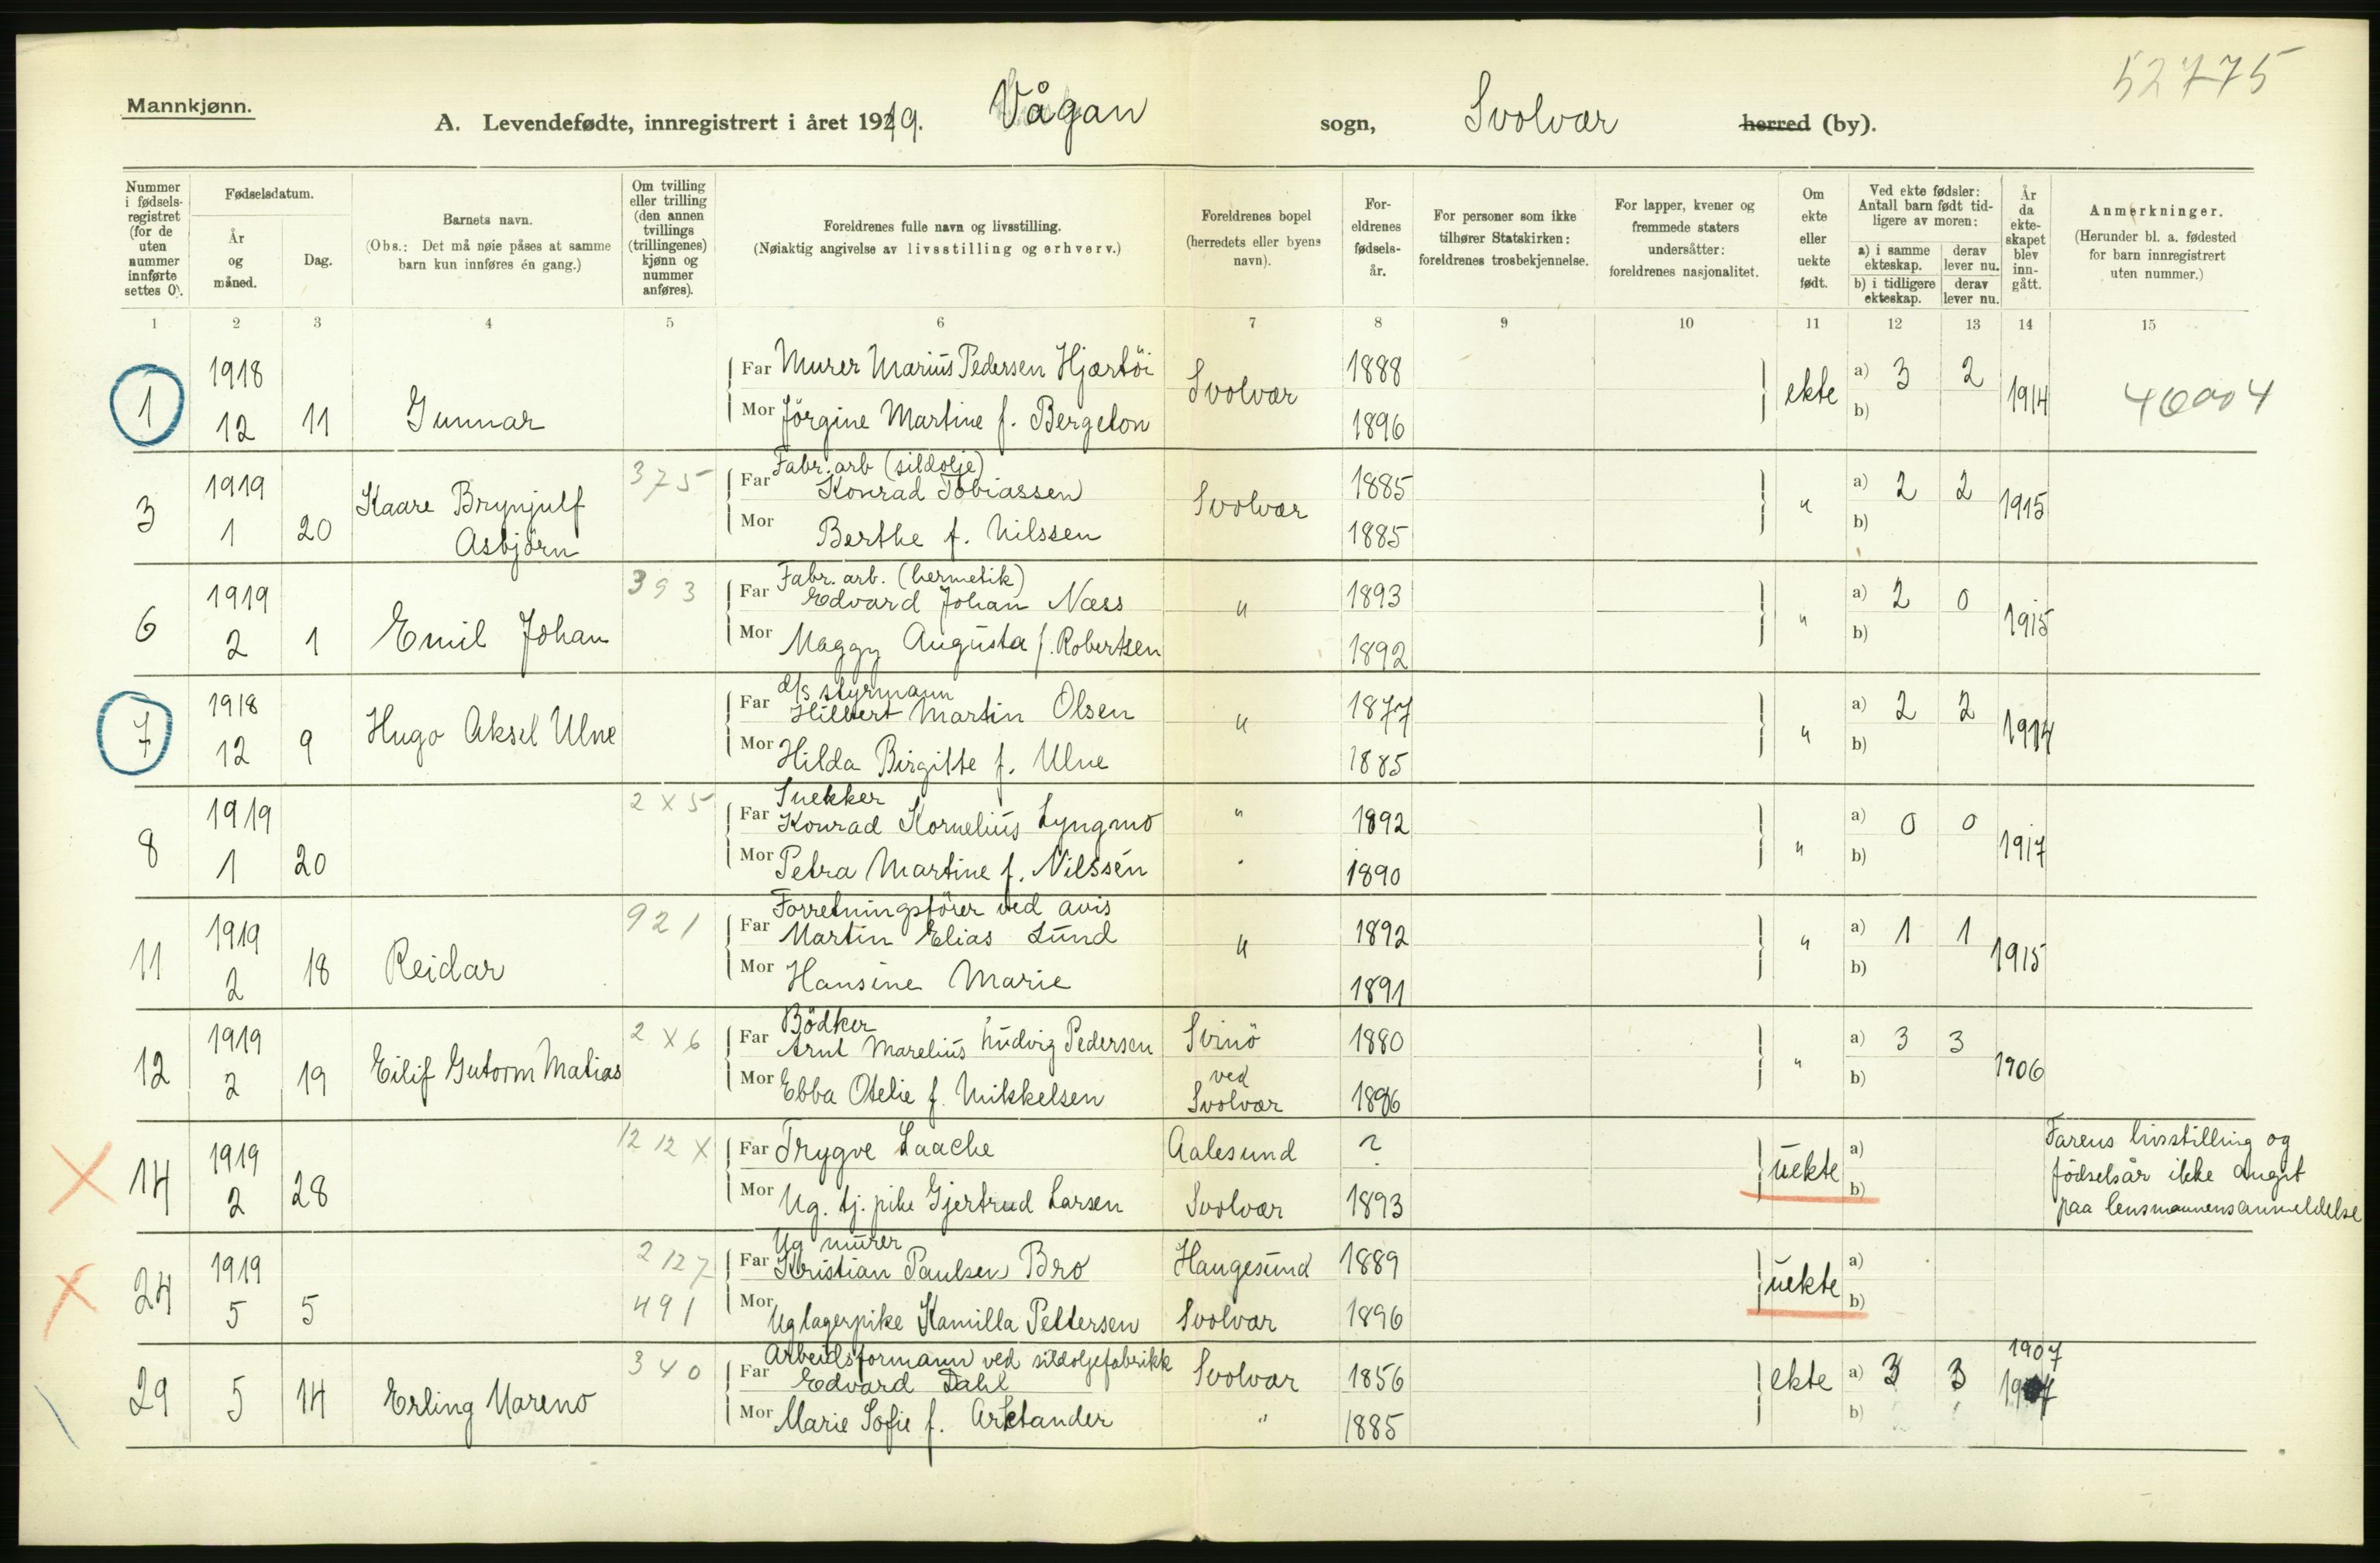 52775
Mannkjønn.
A. Levendefødte, innregistrert i året 1919. Vågan sogn, Svolvær herred (by).
Nummer i fødsels-registret (for de uten nummer innførte settes 0).
Fødselsdatum.
År og måned.
Dag.
Barnets navn.
(Obs.: Det må nøie påses at samme barn kun innføres én gang.)
Om tvilling eller trilling (den annen tvillings (trillingenes) kjønn og nummer anføres).
Foreldrenes fulle navn og livsstilling.
(Nøiaktig angivelse av livsstilling og erhverv.)
Foreldrenes bopel (herredets eller byens navn).
For-eldrenes fødsels-år.
For personer som ikke tilhører Statskirken: foreldrenes trosbekjennelse.
For lapper, kvener og fremmede staters undersåtter: foreldrenes nasjonalitet.
Om ekte eller uekte født.
Ved ekte fødsler: Antall barn født tid-ligere av moren:
a) i samme ekteskap. derav lever nu.
b) i tidligere ekteskap. derav lever nu.
År da ekte-skapet blev inn-gått.
Anmerkninger.
(Herunder bl. a. fødested for barn innregistrert uten nummer.)
1 2 3 4 5 6 7 8 9 10 11 12 13 14 15
1 1918 12 11 Gunnar
Far Murer Marius Pedersen Hjærtöi Svolvær 1888 ekte a) 3 2 1914
Mor Jörgine Martine f. Bergeton 1896 b)
3 1919 1 20 Kaare Brynjulf Asbjörn 375
Fabr. arb (sildolje)
Far Konrad Tobiassen Svolvær 1885 " a) 2 2 1915
Mor Berthe f. Nilssen 1885 b)
6 1919 2 1 Emil Johan 393
Fabr. arb. (hermetik)
Far Edvard Johan Næss " 1893 " a) 2 0 1915
Mor Maggy Augusta f. Robertsen 1892 b)
7 1918 12 9 Hugo Aksel Ulne
d/s styrmann
Far Hilbert Martin Olsen " 1877 " a) 2 2 1914
Mor Hilda Birgitte f. Ulne 1885 b)
8 1919 1 20 2 X 5
Snekker
Far Konrad Kornelius Lyngmo " 1892 " a) 0 0 1917
Mor Petra Martine f. Nilssen " 1890 b)
11 1919 2 18 Reidar 921
Forretningsförer ved avis
Far Martin Elias Lund " 1892 " a) 1 1 1915
Mor Hansine Marie 1891 b)
12 1919 2 19 Eilif Gutorm Matias 2 X 6
Bödker
Far Arnt Marelius Ludvig Pedersen Svinö ved Svolvær 1880 " a) 3 3 1906
Mor Ebba Otelie f. Mikkelsen 1886 b)
14 1919 2 28 12 12 X
Far Trygve Laache Aalesund ? uekte a)
Mor Ug. tj. pike Gjertrud Larsen Svolvær 1893 b)
Farens livsstilling og
födselsår ikke angit
paa lensmannensanmeldelse
24 1919 5 5 2 12 7
491
Ug murer
Far Kristian Paulsen Bro Haugesund 1889 uekte a)
Mor Ug lagerpike Kamilla Pettersen Svolvær 1896 b)
29 5 14 Erling Mareno 340
Arbeidsformann ved sildoljefabrikk
Far Edvard Dahl Svolvær 1856 ekte a) 3 3 1907
Mor Marie Sofie f. Arctander " 1885 b)